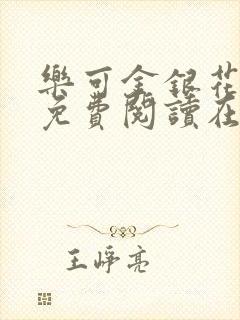 樂可金銀花
免費閱讀在
王崢亮